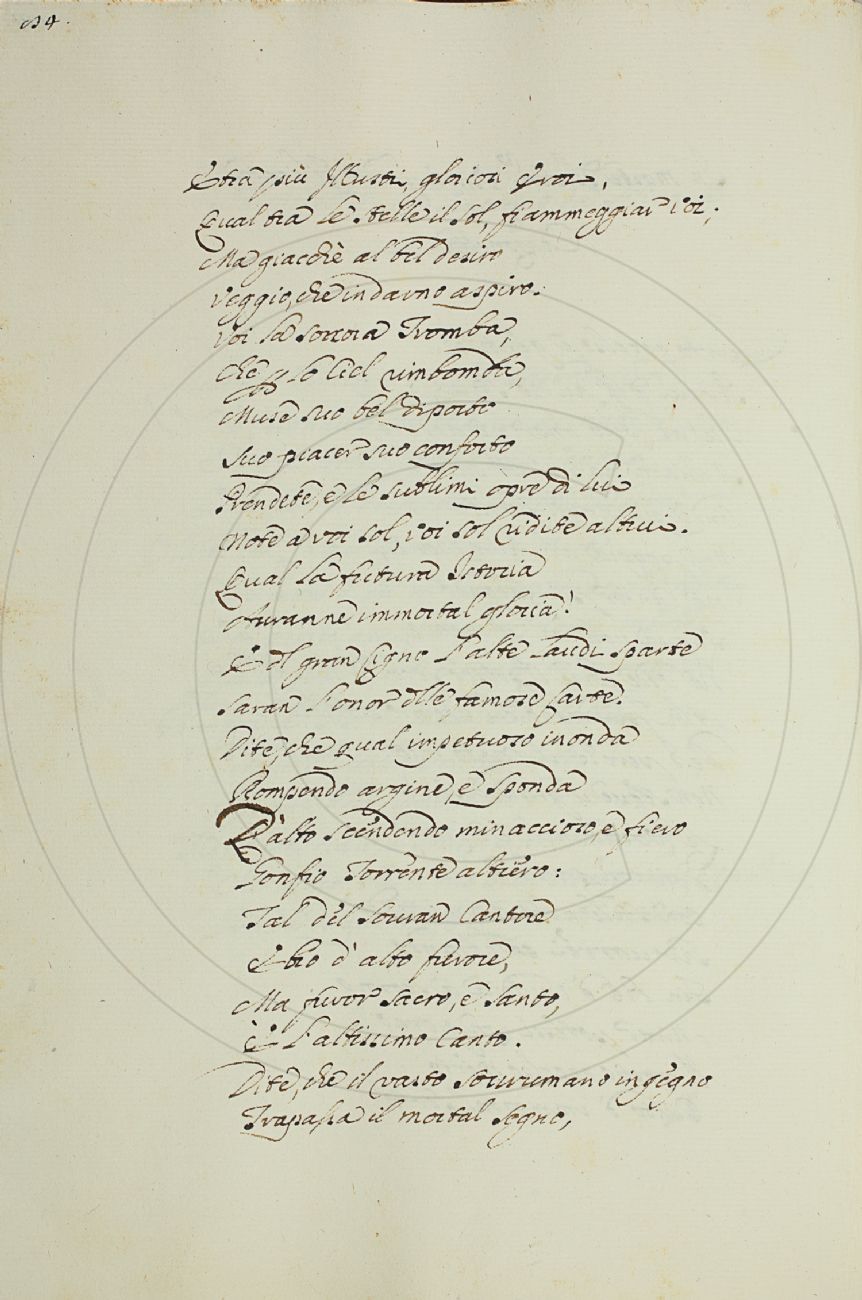 34.
E tra più Illustri, gloriosi Eroi,
Qual tra le stelle il sol, fiammeggiar voi;
Ma giacchè al bel desiro
Veggio, che indarno aspiro.
Voi la sonora Tromba,
Che lo Ciel rimbomba,
Muse suo bel diporto
Suo piacer suo conforto
Prendete, e le sublimi opre di lui
Note a voi sol, voi sol ridite altrui.
Qual la futura Istoria
Auranne immortal gloria!
E dl gran Cigno l'alte laudi sparte
Saran l'onor dlle famose Carte.
Dite, che qual impetuoso inonda
Rompendo argine, e sponda
D'alto scendendo minaccioso, e fiero
Gonfio Torrente altiero:
Tal del Sovran Cantore
Ebro d'alto furore,
Ma furor sacro, e santo,
È l'altissimo Canto.
Dite, che il vasto sovrumano ingegno
Trapassa il mortal segno,